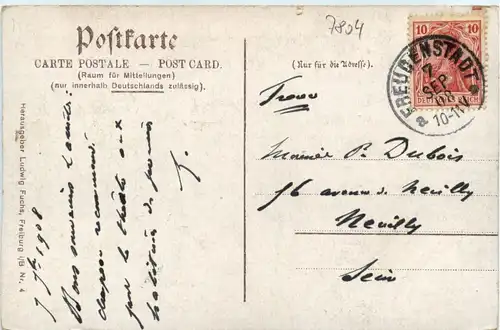 7804
Postkarte
CARTE POSTALE — POST CARD.
(Raum für Mitteilungen)
(nur innerhalb Deutschlands zulässig).
Herausgeber Ludwig Fuchs, Freiburg i/B Nr. 4
7 1908
Bons souvenirs
chapeau recommandé
pour le théâtre aux
J.
(Nur für die Adresse).
10 10
DEUTSCHES REICH
FREUDENSTADT
7
SEP
08
10-11V
a
P. Dubois
76 avenue de Neuilly
Neuilly
Seine